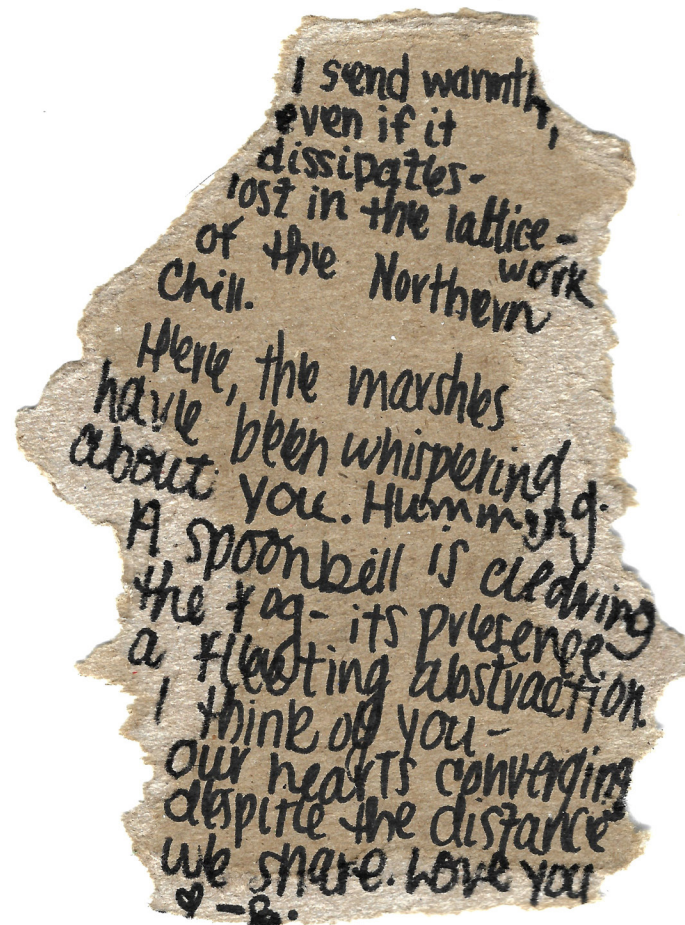 I send warmth,
even if it
dissipates-
lost in the lattice-
work
of the Northern
Chill.
Here, the marshes
have been whispering
about you. Humming.
A spoonbill is clearing
the fog- its presence
a fleeting abstraction.
I think of you-
our hearts converging
despite the distance
we share. Love you
♥ -B.